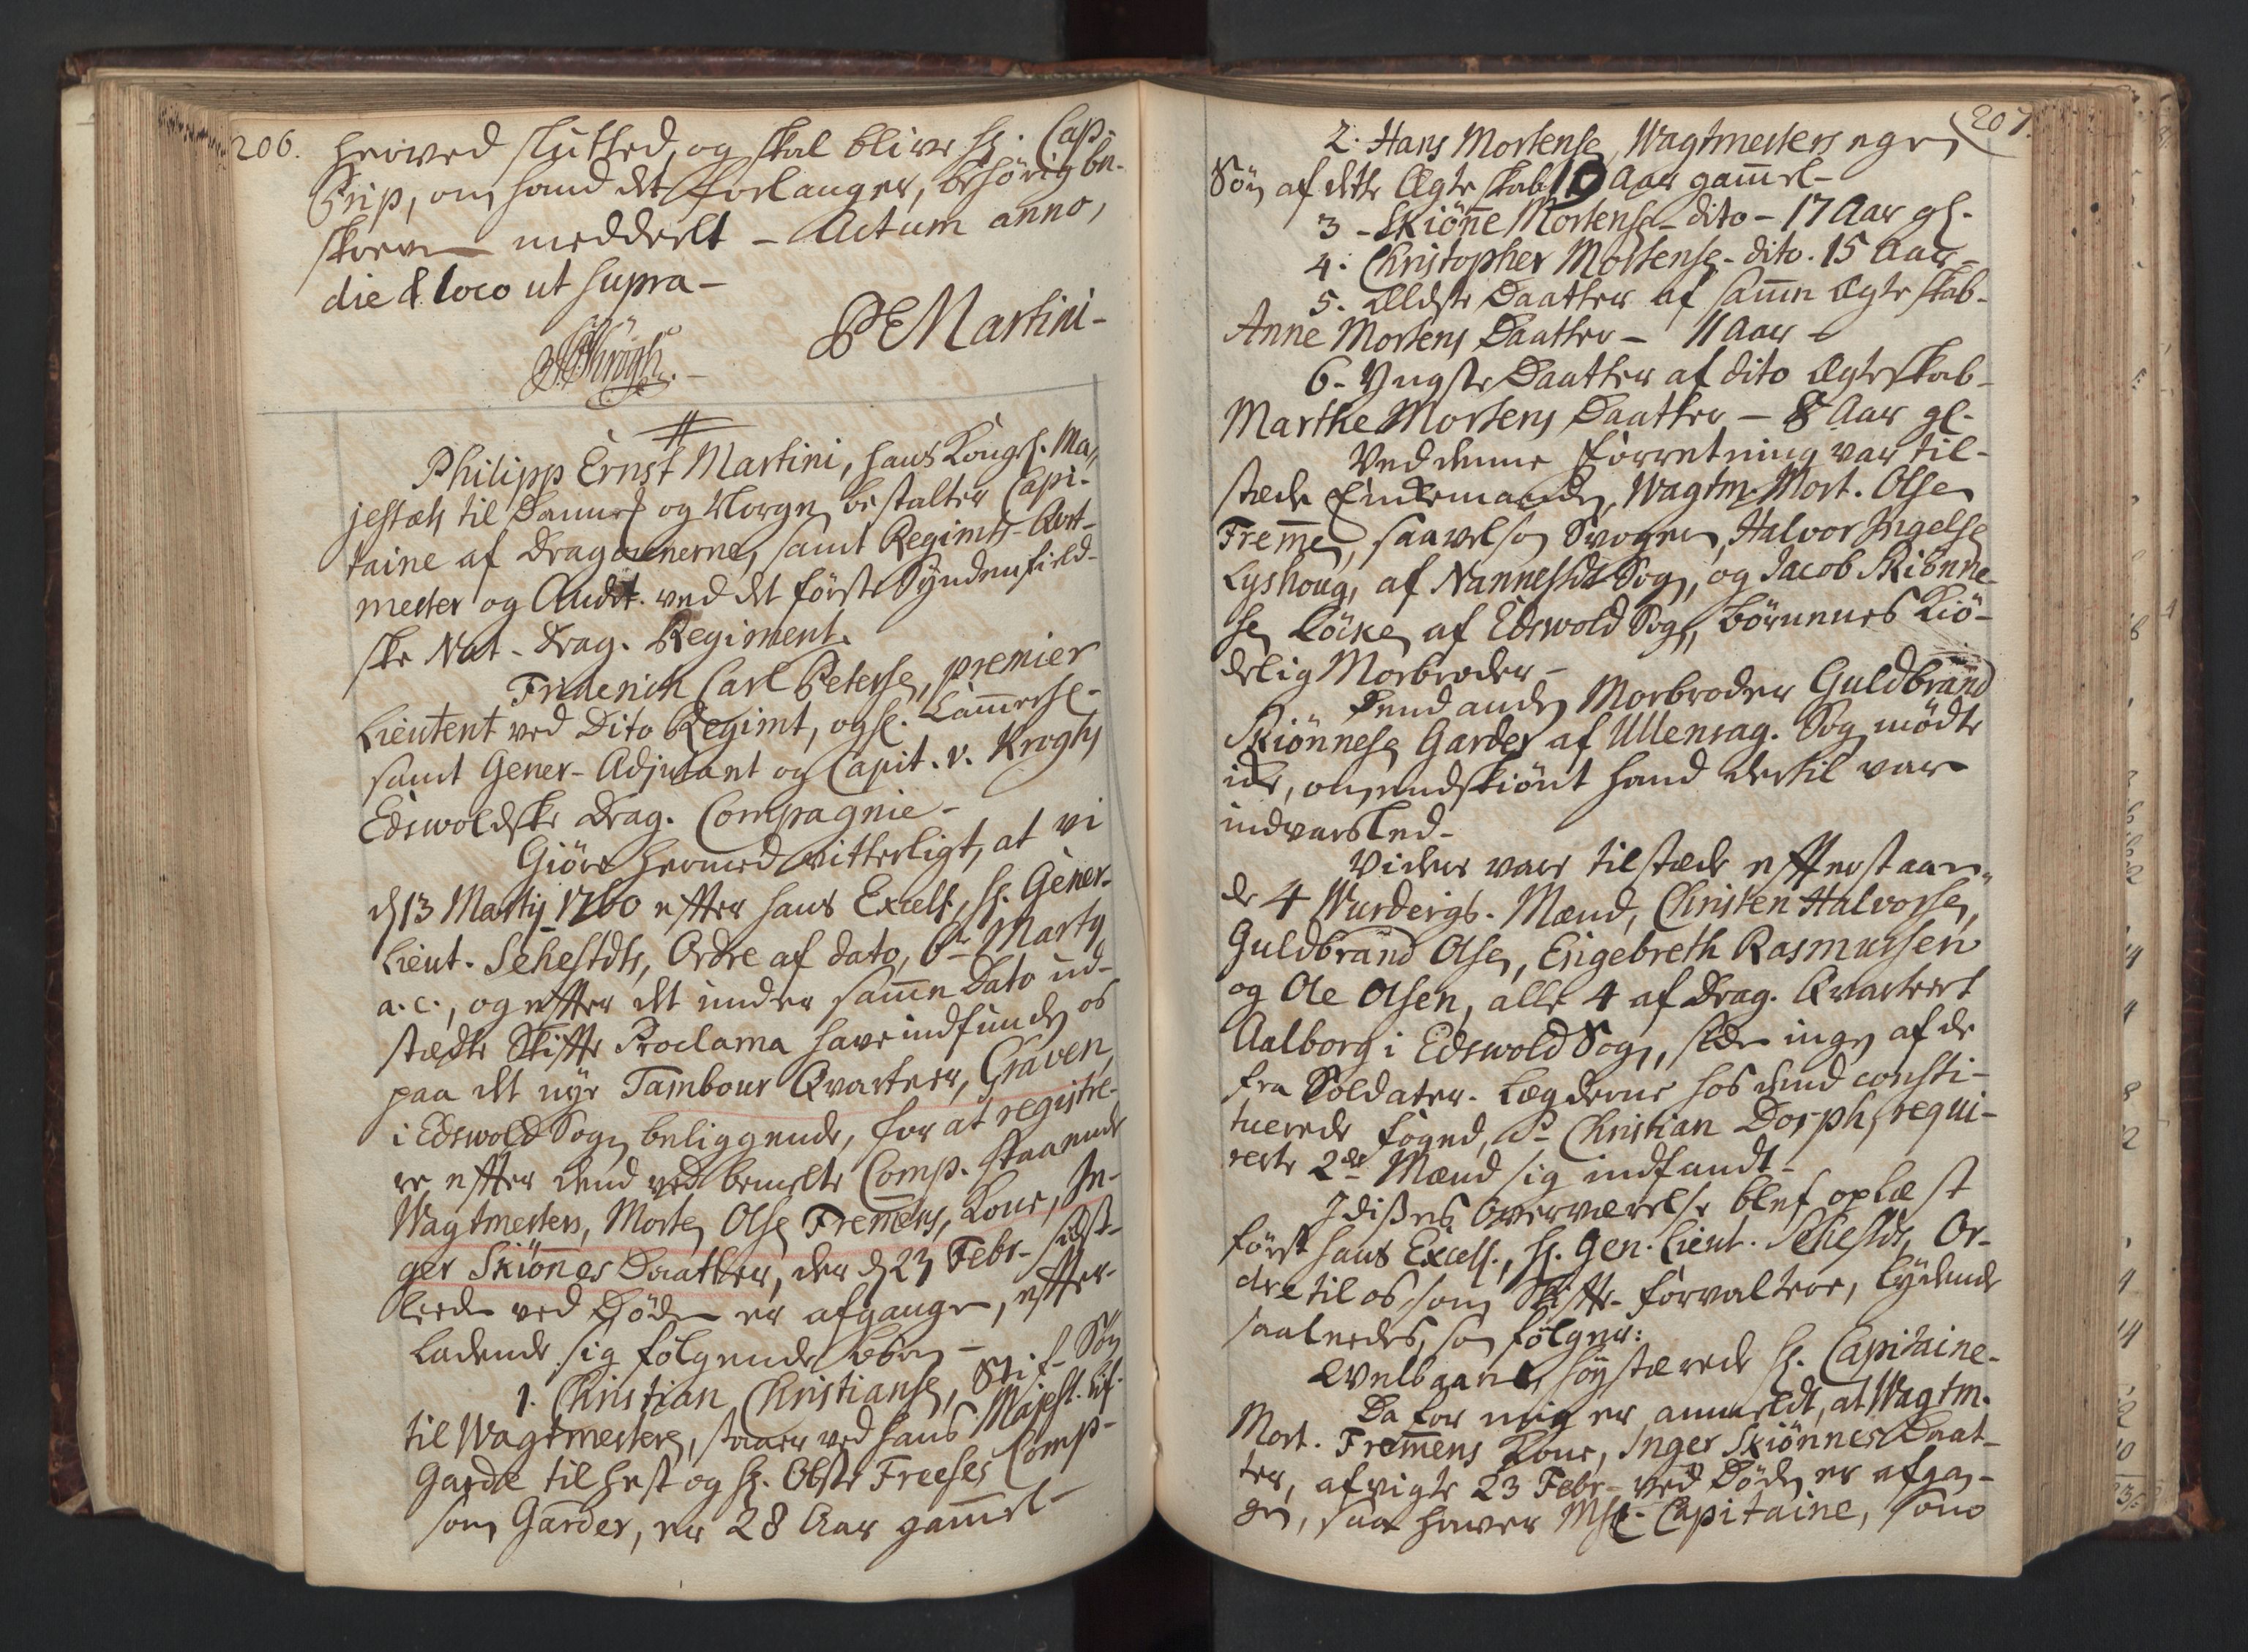 206.
herved slutted, og skal blive Hr. Cap:
Grip, om hand det forlanger, behørig be-
skreven meddeelt - Actum anno,
die & loco ut supra -
PEMartini -
Philipp Ernst Martini, Hans Kongl. Ma,,
jestæts til Danmk og Norge bestalter Capi-
taine af Dragounerne, samt Regimts-Qvt-
mester og Audit. ved det første Syndenfield-
ske Nat. Drag. Regiment.
Friderich Carl Peterse, premier
Lieutent ved Dito Regimt, og Hr. Cammerhr-
samt Gener-Adjutant og Capit. v. Kroghs
Edswoldske Drag. Compagnie -
Giöre hermed vitterligt, at vi
d 13 Martij 1760 efter Hans Excell., Hr. Gener-
Lieut. Sehestdts, Ordre af dato, 6te Martij
a.c., og efter det under samme Dato ud-
stædte Skifte Proclama have indfunden os
paa det nye Tambour Qvarteer, Graven,
i Edswold Sogn beliggende, for at registre-
re efter dend ved bemelte Comp. staaende
Wagtmesters, Morten Olsen Fremens, Kone, In-
ger Skiönnes Daatter, der d 23 Febr. sidst-
leeden ved Döden er afgangen, efter-
ladende sig fölgende Börn -
1. Christian Christianse, Stif-Sön
til Wagtmesteren, staaer ved Hans Majest. Lif-
Garde til Hest og Hr. Obste Freeses Comp-
som Garder, er 28 Aar gammel -
207.
2. Hans Mortense, Wagtmesters egen
Sön af dette Ægteskab 19 Aar gammel -
3 - Skiönne Mortense - dito - 17 Aar gl.
4. Christopher Mortense - dito. 15 Aar -
5. Ældste Daatter af samme Ægteskab -
Anne Mortens Daatter - 11 Aar -
6 - Yngste Daatter af dito Ægteskab -
Marthe Mortens Daatter - 8 Aar gl.
Ved denne Forretning var til-
stede Enkemanden, Wagtm. Mort. Olsen
Fremen, saavelsom Svogeren, Halvor Ingelse
Lyshoug, af Nannestdt Sogn, og Jacob Skiönne-
se Löken af Edswold Sogn, Börnenes Kiö-
delig Morbroder -
Dend anden Morbroder Guldbrand
Skiönnese Garder af Ullensag. Sogn mödte
icke, omendskiönt hand dertil var
indvarsled -
Videre vare tilstæde efterstaaen-
de 4 Wurderings-Mænd, Christen Halvorsen,
Guldbrand Olsen, Engebreth Rasmussen
og Ole Olsen, alle 4 af Drag. Qvarteret
Aalborg i Edswold Sogn, siden ingen af de
fra Soldater-Lægderne hos dend consti-
tuerede Foged, Sr Christian Dorph, requi-
rerte 2de Mænd sig indfandt -
I dises Overværelse blef oplæst
först Hans Excell., Hr. Gen. Lieut. Sehestdts Or-
dre til os, som Skifte-Forvaltere, lydende
saaledes, som fölger:
Welbaarne, höystærede Hr. Capitaine -
Da for mig er anmeldt, at Wagtm.
Mort. Fremens Kone, Inger Skiönnes Daat-
ter, afvigte 23 Febr - ved Döden er afgan-
gen, saa haver Msr. Capitaine, som